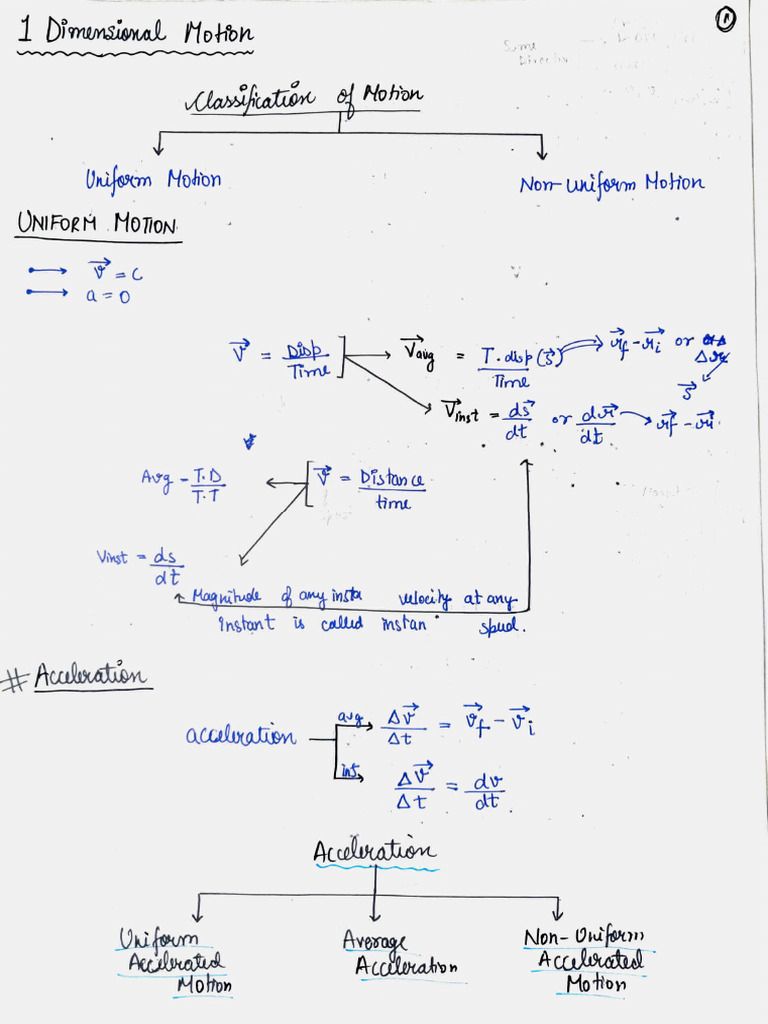 1 Dimensional Motion
Classification of Motion
Uniform Motion
Non-Uniform Motion
UNIFORM MOTION
v⃗ = c
a = 0
v⃗ = Disp/Time
V⃗avg = T.disp(s⃗)/Time
r⃗f - r⃗i or Δr
s⃗
V⃗inst = ds⃗/dt or dr⃗/dt
r⃗f - r⃗i
Avg - T.D/T.T
v⃗ = Distance/time
Vinst = ds/dt
Magnitude of any insta velocity at any
Instant is called instan spud.
# Acceleration
acceleration
avg Δv⃗/Δt = v⃗f - v⃗i
inst Δv⃗/Δt = dv/dt
Acceleration
Uniform
Accelerated
Motion
Average
Acceleration
Non-Uniform
Accelerated
Motion